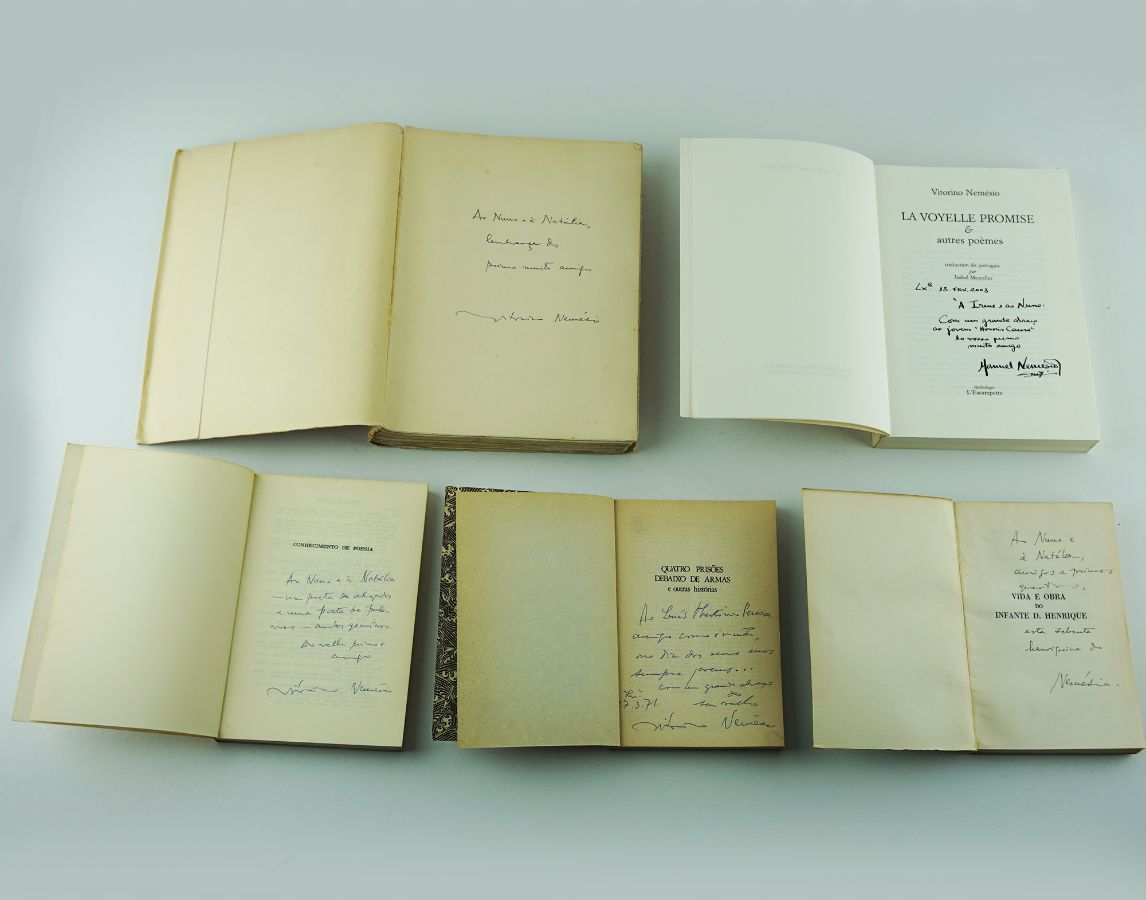 Ao Nuno e à Natália,
lembrança do
primo muito amigo
Vitorino Nemésio
Vitorino Nemésio
LA VOYELLE PROMISE
&
autres poèmes
traduction du portugais
par
Isabel Meyrelles
Lxª 13. FEV. 2003
À Irene e ao Nuno:
Com um grande abraço
ao jovem "Honoris Causa"
do vosso primo
muito amigo
Manuel Nemésio
Anthologie
L'Escampette
CONHECIMENTO DE POESIA
Ao Nuno e à Natália
– um poeta de
e uma poeta de
– ambos
Do velho primo e
amigo
Vitorino Nemésio
QUATRO PRISÕES
DEBAIXO DE ARMAS
e outras histórias
Ao Luís
amigo como irmão,
no dia dos seus anos
sempre jovens...
com um grande abraço
do
7.3.71. seu velho
Vitorino Nemésio
Ao Nuno e
à Natália,
amigos e primos
VIDA E OBRA
DO
INFANTE D. HENRIQUE
esta sebenta
henriquina do
Nemésio.